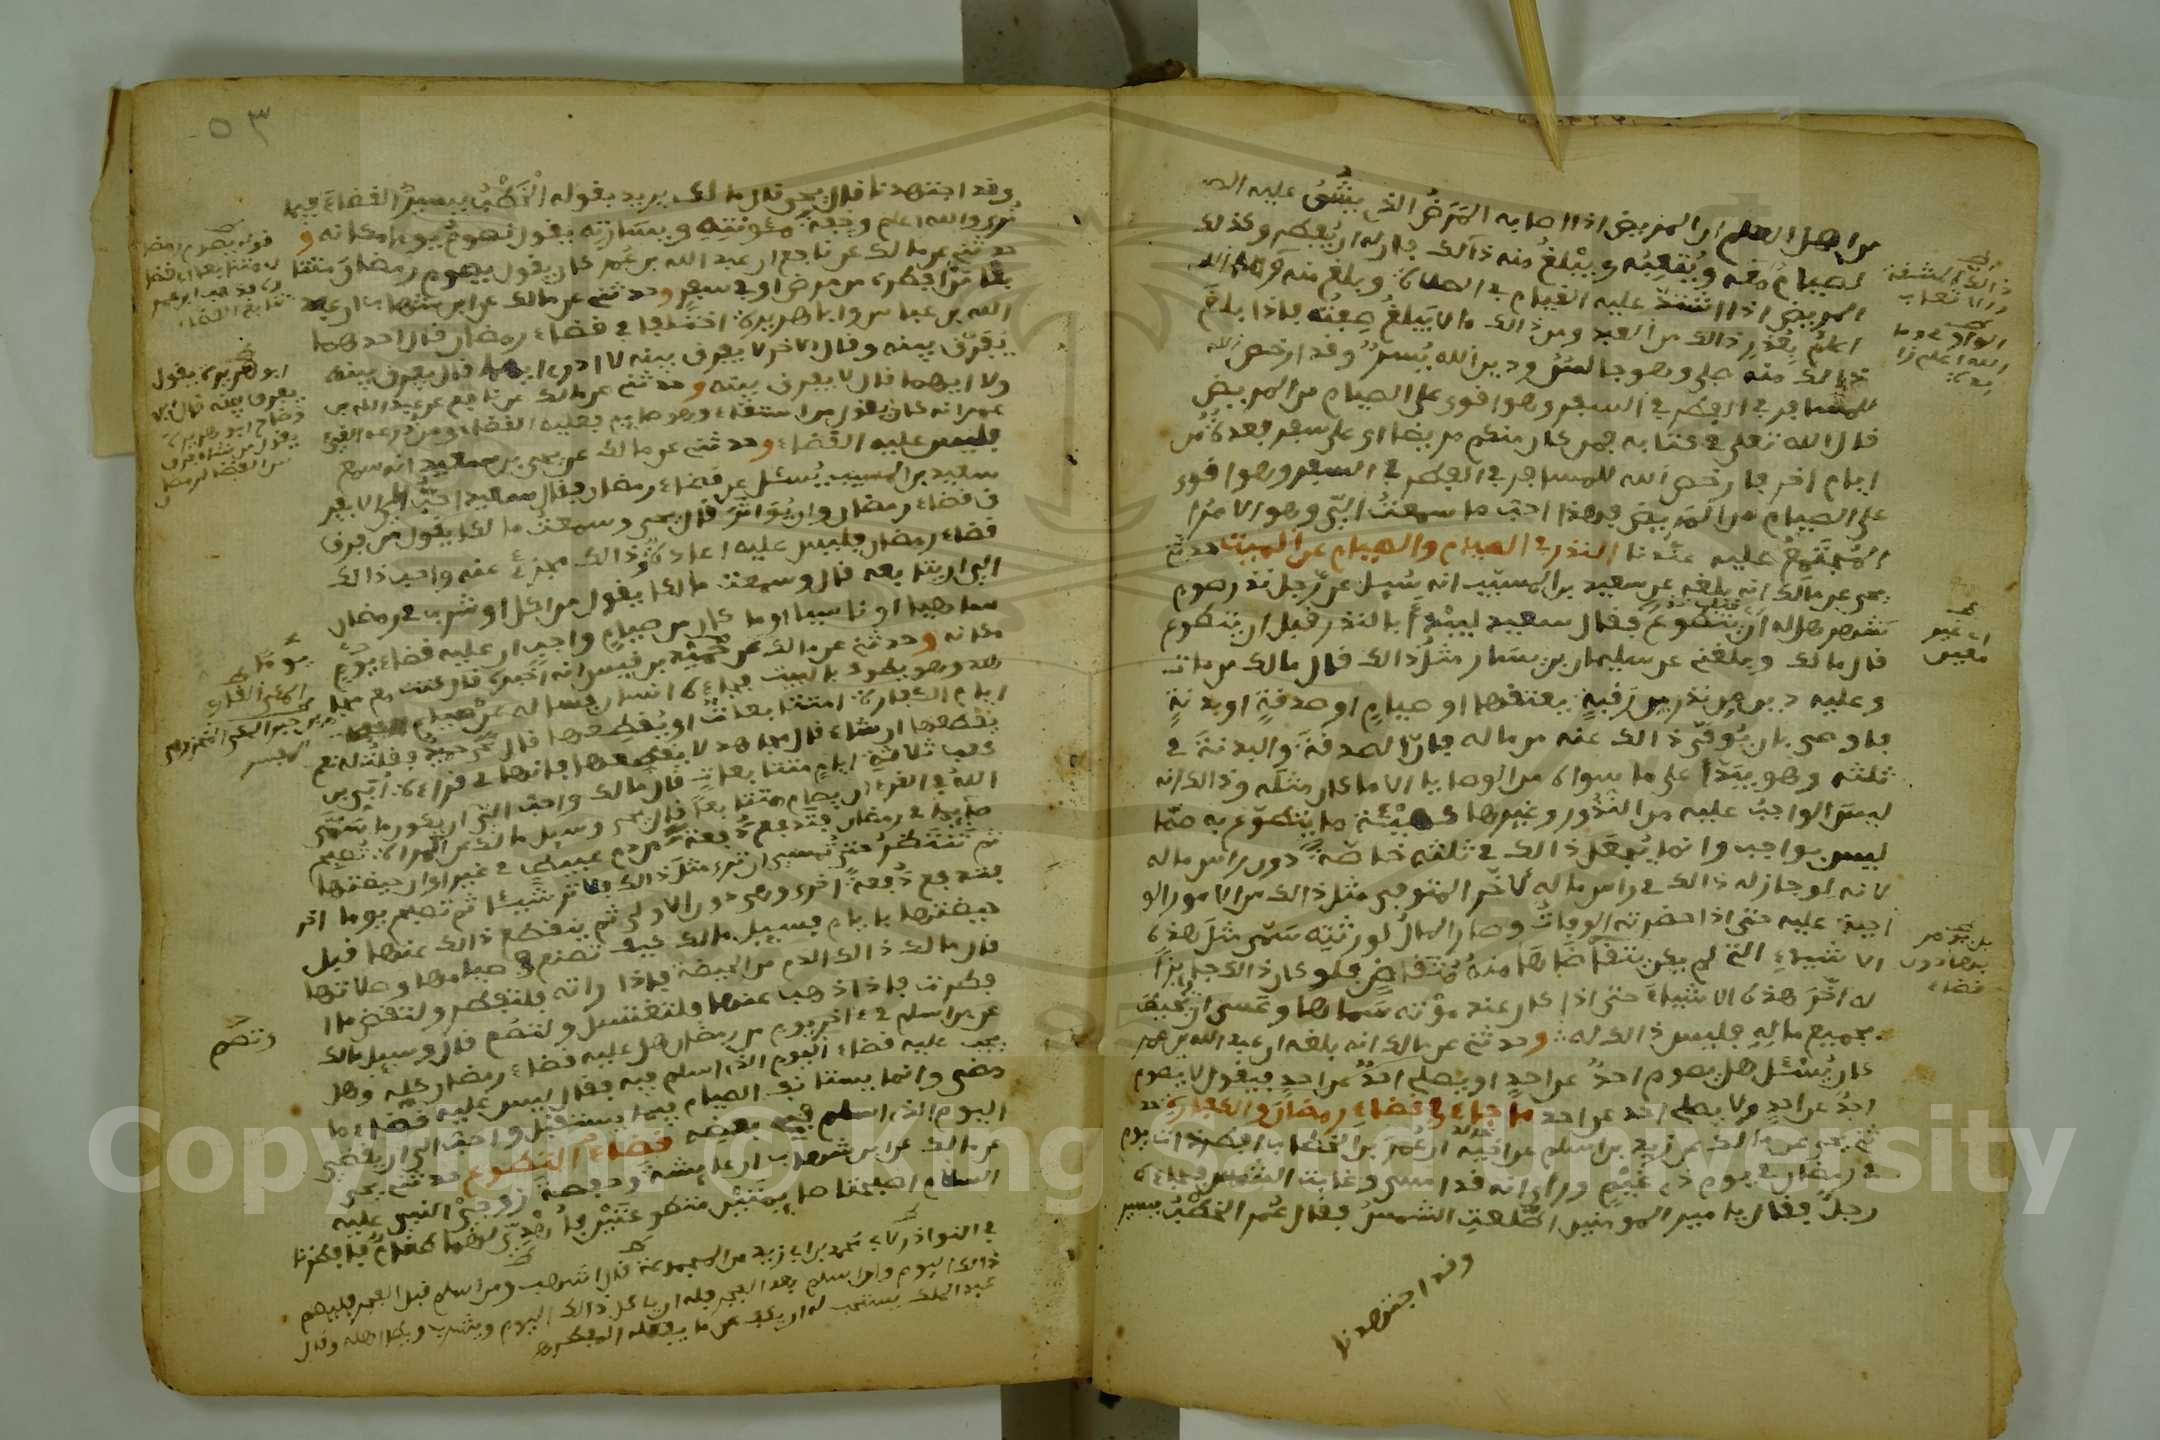 من اهل العلم ان المريض اذا اصابه المَرَضُ الذي يَشُقُّ عليه الص
لصيام معه ويُتعِبُه ويبْلغُ منه ذالك فان له ان يُفطِر وكذلك
المريض اذا اشتدّ عليه القيام في الصلاة وبلغ منه وما الله
اعلمُ بِعُذرِ ذالك من العبد ومن ذالك ما لا يَبلغُ صِفتُه فاذا بلغَ
ذالك منه صلى وهو جالسٌ ودين الله يُسرٌ وقد ارخص الله
للمسافر في الفطر في السفر وهو اقوى على الصيام من المريض
قال الله تعلى في كتابه فمن كان منكم مريضا او على سفر فعدةٌ من
ايام اخر فارخص الله للمسافر في الفطر في السفر وهو اقوى
على الصيام من المَريض فهذا احبّ ما سمعتُ اليّ وهو الامرُ
المُجتَمَعُ عليه عندنا النذر في الصيام والصيام عن الميت حدثني
يحيى عن مالك انه بلغه عن سعيد بن المسيّب انه سُيِل عن رّجل نذر صوم
شهر هل له ان يتطوع فقال سعيد ليبْدأ بالنذر قبل ان يتطوع
قال مالك وبلغني عن سليمان بن يسَار مثلُ ذالك قال مالك من مات
وعليه نذر من رَقبةٍ يعتقها او صيامٍ او صدقةٍ او بدنةٍ
فاوصى بان يُوَفّى ذالك عنه من ماله فانّ الصدقةَ والبدنةَ في
ثلثه وهو يبَدّأ على ما سواه من الوصايا الا ما كان مثلَه وذالك انه
ليسَ الواجبُ عليه من النُّذُور وغيرها كهيْئةِ ما يتطوّع به ممّا
ليس بواجب وانما يُجعَل ذالك في ثلثه خاصّة دون راس ماله
لانه لو جاز له ذالك في راس ماله لأخّر المتوفى مثل ذالك من الامور الو
اجبة عليه حتى اذا حضرته الوفاتُ وصار المالُ لورثتِه سَمّى مثلَ هذه
الاشياءِ التي لم يكن يتقاضَاها منهُ مُتقاضٍ فلو كان ذالك جايزا
له اخّرَ هذه الاشياءَ حتى اذا كان عند مؤته سَماها وعَسى ان يُحيطَ
بجميع مالِهِ فليس ذالك له وحدثني عن مالك انه بلغه ان عبد الله بن عمر
كان يُسْئل هل يصوم احدٌ عن احدٍ او يصلي احَدٌ عن احدٍ فيقول لا يصوم
احدٌ عن احدٍ ولا يصلي احد عن احد ما جاء في قضاءِ رمضانَ والكفارات حد
ثني يحيى عن مالك عن زيد بن اسلم عن اخيه ان عُمر بن الخطاب افطر ذات يوم
في رمضان في يوم ذي غَيْمٍ وراى انه قد امسى وغابت الشمس فجاءه
رجلٌ فقال يا امير المومنين اطّلعتِ الشمسُ فقال عُمر الخطْبُ يسير
وقد اجتهدنا
ذالك المشقة
ان غير
معين
٥٣
وقد اجتهدنا قال يحيى قال مالك يريد بقوله الْخَطْبُ يسيرٌ القضاءَ فيما
نُرى والله اعلم وخِفّةَ مَئونتِهِ ويسَارَتِه يقول نصومُ يوما مكانه و
حدثني عن مالك عن نافع ان عبد الله بن عُمر كان يقول يصوم رمضانَ متتا
بعا مَنْ افطره من مرض او في سفر وحدثني عن مالك عن ابن شهاب ان عبد
الله بن عباس وابا هريرة اختلفا في قضاء رمضان فقال احدهما
يُفرّق بينه وقال الاخر لا يفرق بينه لا ادري ايهما قال يفرق بينه
ولا ايهما قال لا يفرق بينه وحدثني عن مالك عن نافع عن عبد الله بن
عمر انه كان يقول من استقاء وهو صايم فعليه القضاء ومن ذرعه القيء
فليس عليه القضاء وحدثني عن مالك عن يحيى بن سعيد انه سمع
سعيد بن المسيب يُسئل عن قضاء رمضان فقال سعيد احبُّ اليّ الا يفر
ق قضاء رمضان وان يُوَاتَر قال يحيى وسمعت مالكا يقول من فرق
قضاء رمضان فليس عليه اعادةٌ وذالك مجزئ عنه واحب ذالك
الي ان يتابعه قال وسمعت مالكا يقول من اكل او شرب في رمضان
ساهيا او ناسيا او ما كان من صيامٍ واجب ان عليه قضاءَ يومٍ
مكانه وحدثني عن مالك عن حميد بن قيس انه اخبره قال كنت مع مجا
هد وهو يطوف بالبيت فجاءه انسان فساله عن صيام
ايام الكفارة امتتابعاتٌ او يُقطعها قال حميد فقلت له نعم
يقطعها ان شاء قال مجاهد لا يقطعها فانها في قراءة اُبَيّ بن
كعب ثلاثةِ ايامٍ متتابعاتٍ قال مالك واحب الي ان يكون ما سَمّى
الله في القرءان يصام متتابعا قال يحيى وسيل مالك عن المراة تُصبِح
صايما في رمضان فتَدفع دُفعةً من دم عبيطٍ في غير اوان حيضتها
ثم تَنتَظِرُ حتى تُمسي ان ترى مثلَ ذالك فلا ترى شيئا ثم تصبح يوما اخر
فتدفع دُفعةً اخرى وهي دون الاولى ثم ينقطع ذالك عنها قبل
حيضتها بايام فسيل مالك كيف تصنع في صيامها وصلاتها
قال مالك ذالك الدم من الحيضة فاذا راته فلتفطر ولتقض ما ا
فطرت فاذا ذهب عنها فلتغتسل ولتصُم قال وسيل مالك
عن من اسلم في ءاخر يوم من رمضان هل عليه قضاء رمضان كلِه وهل
يجب عليه قضاء اليوم الذي اسلم فيه فقال ليس عليه قضاء ما
مضى وانما يستانف الصيام فيما يستقبل واحب الي ان يقضي
اليوم الذي اسلم فيه بعضه قضاء التطوع حدثني يحيى
عن مالك عن ابن شهاب ان عايشة وحفصة زوجي النبي عليه
السلام اصبحتا صايمتين متطوعتَيْن فاُهْدِيَ لهما طعامٌ فافطرتا
في النوادر لابي محمد بن ابي زيد من المجموعة قال اشهب ومن اسلم قبل الفجر فليصم
ذالك اليوم وان اسلم بعد الفجر فله ان ياكل ذالك اليوم ويشرب ويطا اهله وقال
عبد الملك يستحب له ان يكف عن ما يفعله المفطر
ابو هريرة يقول
يوما
وتصم